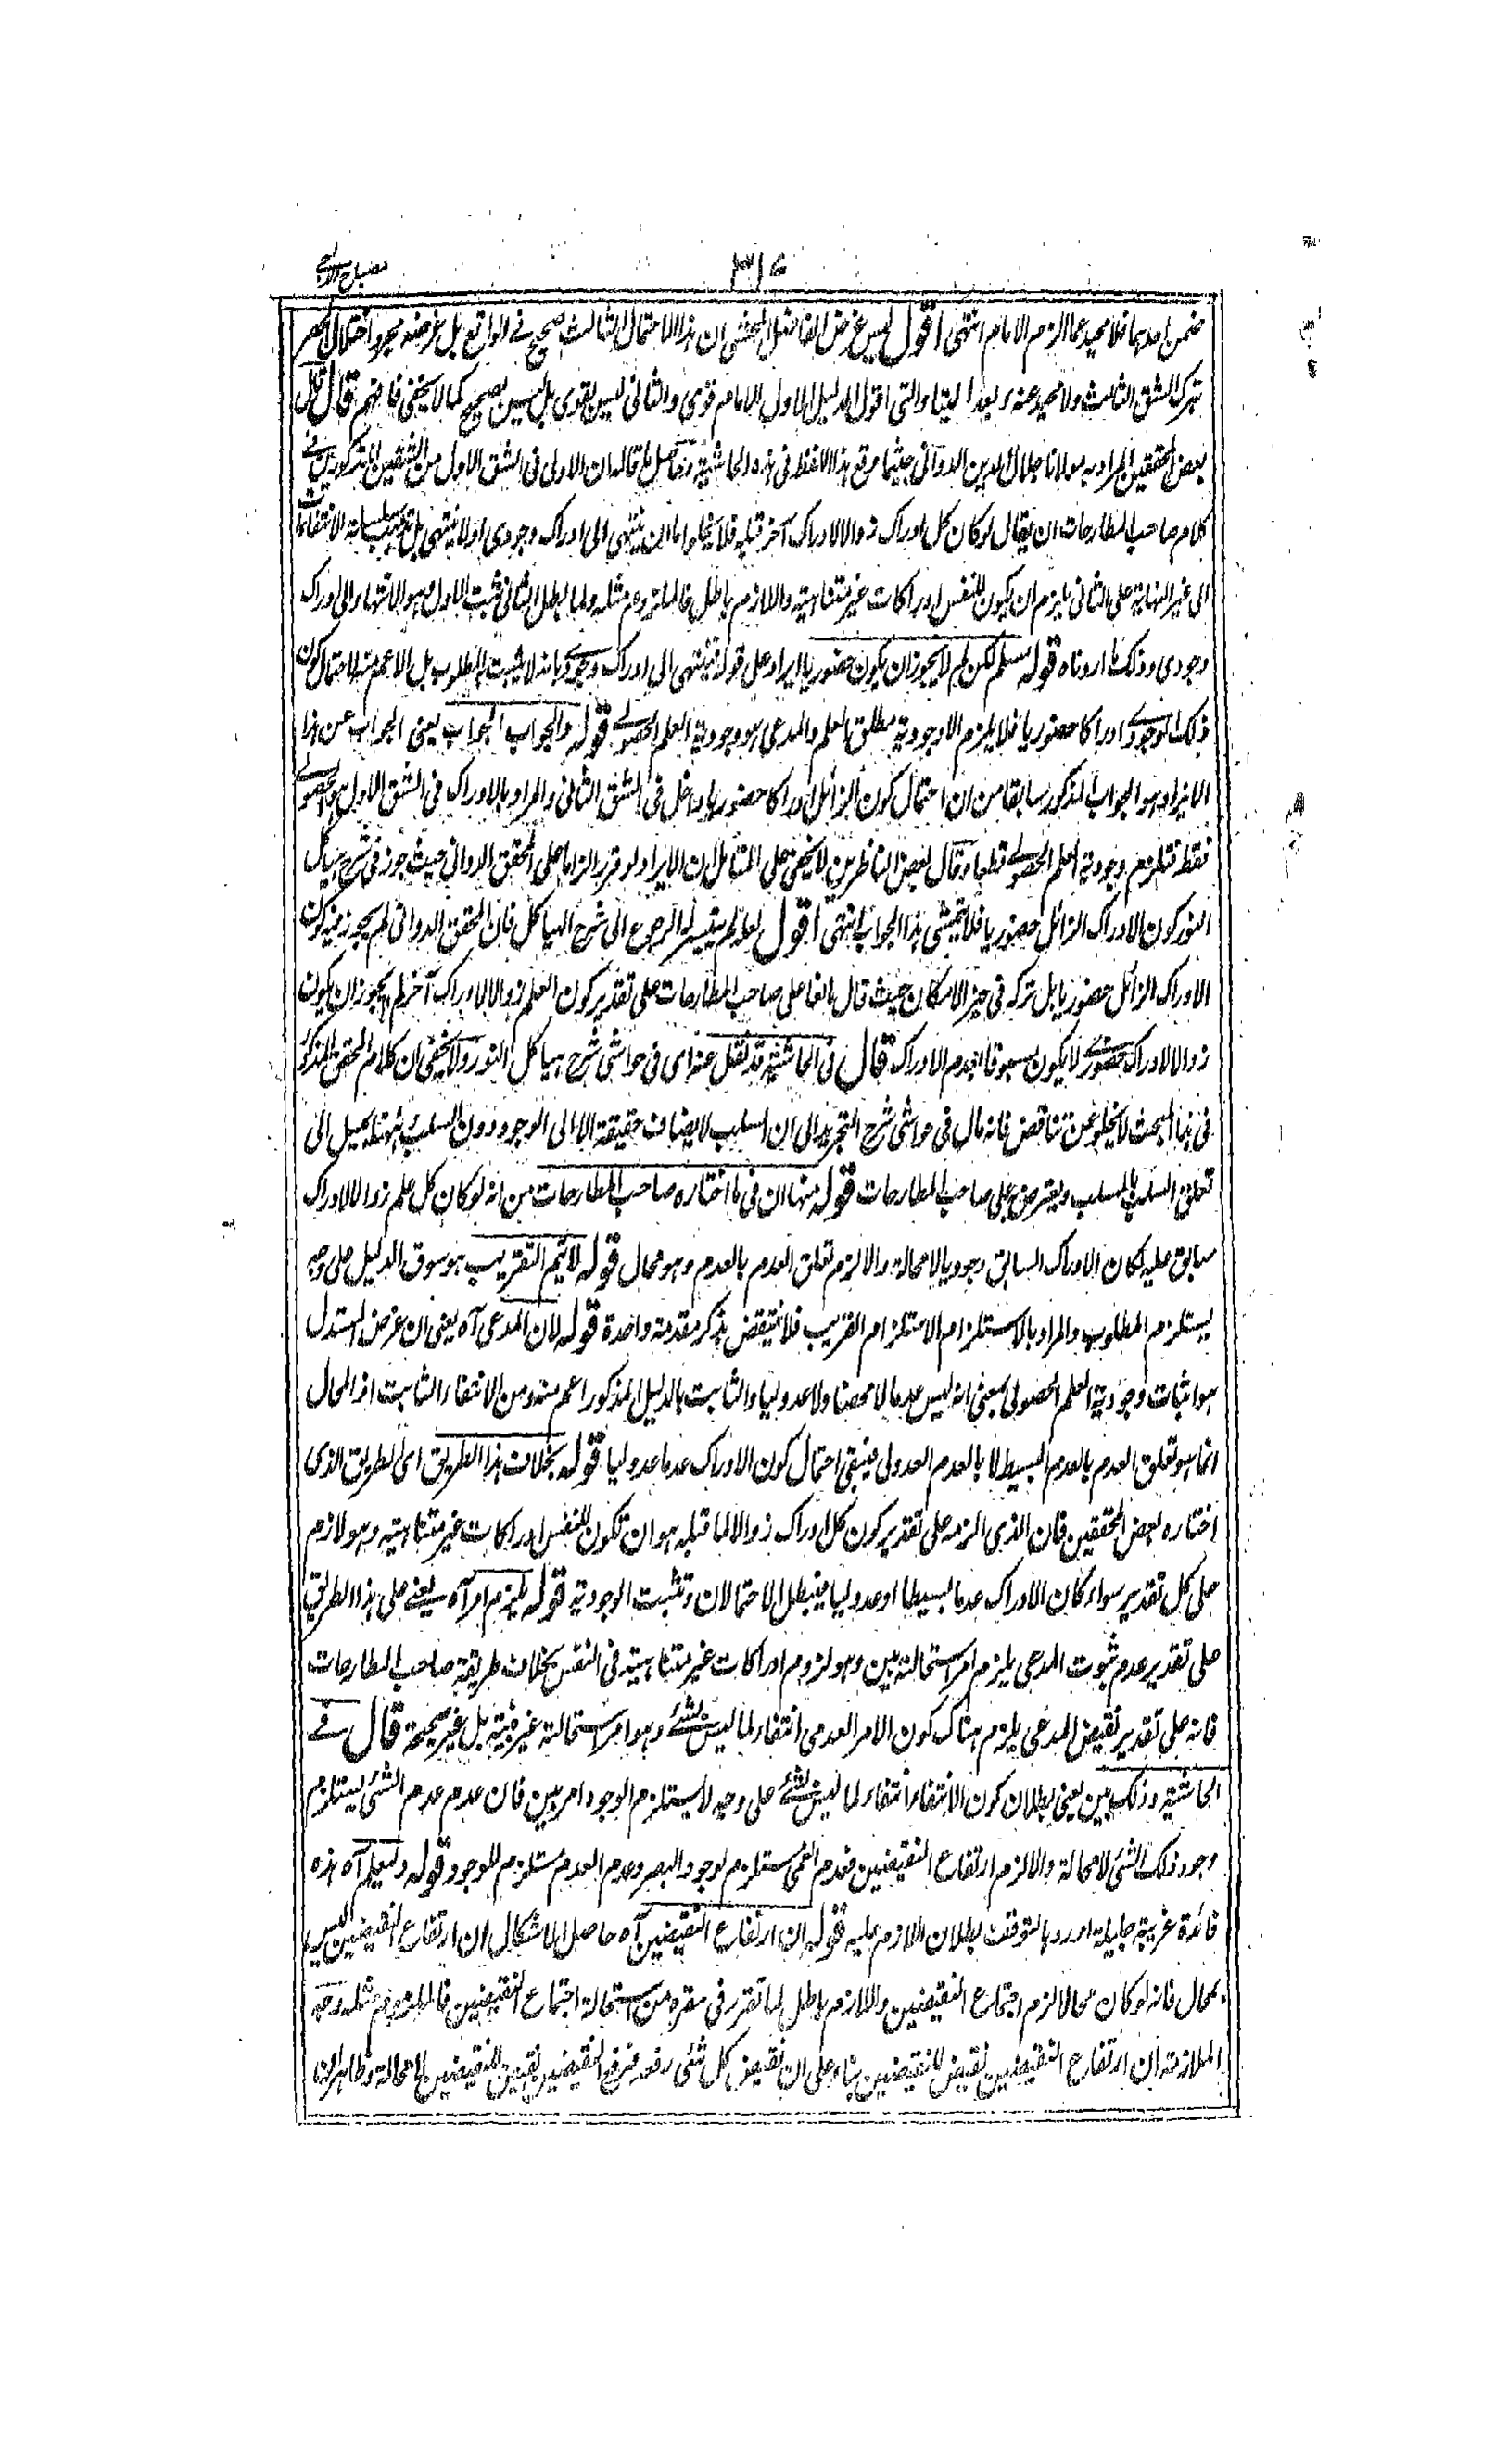 مصباح الدجى
٣١٤
ضمن احدهما فلا محيد عما الزم الامام انتهى اقول ليس غرض الفاضل المحشى ان هذا الاحتمال الثالث صحيح فى الواقع بل غرضه مجرد اختلال الحصر
بترك الشق الثالث ولا محيد عنه وبعد اللتيا والتى اقول الدليل الاول للامام قوى والثانى ليس بقوى بل ليس بصحيح كما لا يخفى فافهم قال قال
بعض المحققين المراد به مولانا جلال الدين الدوانى حيثما وقع هذا اللفظ فى هذه الحاشية وحاصل ما قاله ان الاولى فى الشق الاول من الشقين المذكورين فى
كلام صاحب المطارحات ان يقال لو كان كل ادراك زوالا لادراك آخر قبله فلا يخلوا ما ان ينتهى الى ادراك وجودى او لا ينتهى بل تذهب سلسلة الانتفاءات
الى غير النهاية على الثانى يلزم ان يكون للنفس ادراكات غير متناهية واللازم باطل فالملزوم مثله ولما بطل الثانى ثبت الاول وهو الانتهاء الى ادراك
وجودى وذلك ما اردناه قوله مسلم لكن لم لا يجوز ان يكون حضوريا ايراد على قوله فينتهى الى ادراك وجودى بانه لا يثبت المطلوب بل الاعم منه لاحتمال كون
ذلك الوجودى ادراكا حضوريا فلا يلزم الا وجودية مطلق العلم والمدعى هو وجودية العلم الحصولى قوله والجواب الجواب يعنى الجواب عن هذا
الايراد هو الجواب المذكور سابقا من ان احتمال كون الزائل ادراكا حضوريا داخل فى الشق الثانى والمراد بالادراك فى الشق الاول هو الحصولى
فقط فتلزم وجودية العلم الحصولى قطعا وقال بعض الناظرين لا يخفى على المتامل ان الايراد لو قرر الزاما على المحقق الدوانى حيث جوز فى شرح هياكل
النور كون الادراك الزائل حضوريا فلا يتمشى هذا الجواب انتهى اقول لعله لم يتيسر له الرجوع الى شرح الهياكل فان المحقق الدوانى لم يجوز فيه كون
الادراك الزائل حضوريا بل تركه فى حيز الامكان حيث قال بالغا على صاحب المطارحات على تقدير كون العلم زوالا لادراك آخر لم لا يجوز ان يكون
زوالا لادراك حضورى لا يكون مسبوقا بعدم الادراك قال فى الحاشية قد نقل عنه اى فى حواشى شرح هياكل النور ولا يخفى ان كلام المحقق المذكور
فى هذا المبحث لا يخلو عن تناقض فانه مال فى حواشى شرح التجريد الى ان السلب لا يضاف حقيقة الا الى الوجود دون السلب وههنا يميل الى
تعلق السلب بالسلب ويعترض على صاحب المطارحات قوله منها ان فى ما اختاره صاحب المطارحات من انه لو كان كل علم زوالا لادراك
سابق عليه لكان الادراك السابق وجوديا لا محالة والا لزم تعلق العدم بالعدم وهو محال قوله لا يتم التقريب هو سوق الدليل على وجه
يستلزم المطلوب والمراد بالاستلزام الاستلزام القريب فلا ينتقض بذكر مقدمة واحدة قوله لان المدعى آه يعنى ان غرض المستدل
هو اثبات وجودية العلم الحصولى بمعنى انه ليس عدما لا محضا ولا عدوليا والثابت بالدليل المذكور اعم منه ومن الانتفاء الثابت اذ المحال
انما هو تعلق العدم بالعدم البسيط لا بالعدم العدولى فيبقى احتمال كون الادراك عدما عدوليا قوله بخلاف هذا الطريق اى الطريق الذى
اختاره بعض المحققين فان الذى الزمه على تقدير كون كل ادراك زوالا لما قبله هو ان تكون للنفس ادراكات غير متناهية وهو لازم
على كل تقدير سواء كان الادراك عدما بسيطا او عدوليا فيبطل الاحتمالان وتثبت الوجودية قوله يلزم امر آه يعنى على هذا الطريق
على تقدير عدم ثبوت المدعى يلزم امر استحالته بين وهو لزوم ادراكات غير متناهية فى النفس بخلاف طريقة صاحب المطارحات
فانه على تقدير نقيض المدعى يلزم هناك كون الامر العدمى انتفاء لما ليس بشئ وهو امر استحالته غير بينة بل غير صحيحة قال فى
الحاشية وذلك بين يعنى بطلان كون الانتفاء انتفاء لما ليس بشئ على وجه لا يستلزم الوجود امر بين فان عدم عدم الشئ يستلزم
وجود ذلك الشئ لا محالة والا لزم ارتفاع النقيضين فعدم العمى مستلزم لوجود البصر وعدم العدم مستلزم للوجود قوله وليعلم آه هذه
فائدة غريبة جليلة اوردها لتوقف بطلان اللازم عليه قوله ان ارتفاع النقيضين آه حاصل الاشكال ان ارتفاع النقيضين ليس
بمحال فانه لو كان محالا لزم اجتماع النقيضين واللازم باطل لما تقرر فى مقره من استحالة اجتماع النقيضين فالملزوم مثله وجه
الملازمة ان ارتفاع النقيضين نقيض للنقيضين بناء على ان نقيض كل شئ رفعه فرفع النقيضين نقيض للنقيضين لا محالة وظاهر انه